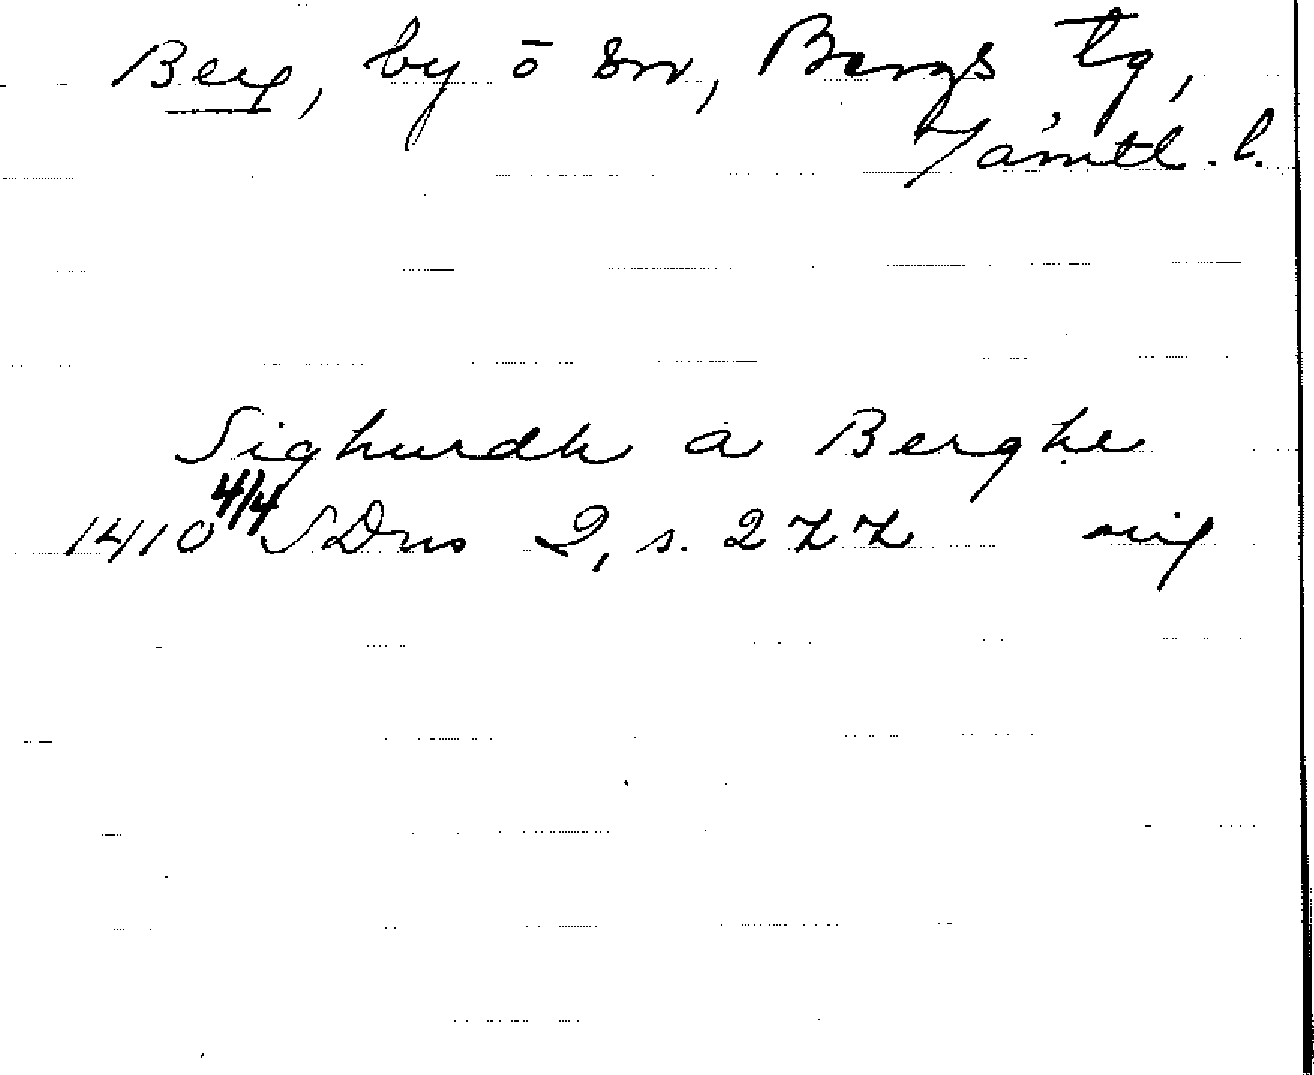 Berg, by o sn, Bergs tg,
Jämtl. l.
Sighurdh a Berghe
4/4
1410 SDns 2, s. 277 orig